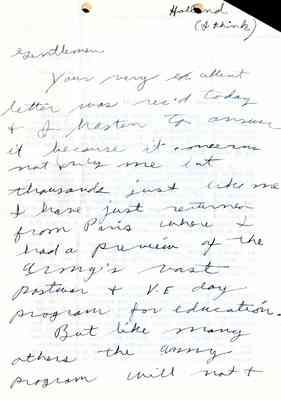 Holland
(I think)
Gentlemen
Your very excellent
letter was rec'd today
& I hasten to answer
it because it concerns
not only me but
thousands just like me
I have just returned
from Paris where I
had a preview of the
army's vast
postwar & V.E day
program for education.
But like many
others the army
program will not &